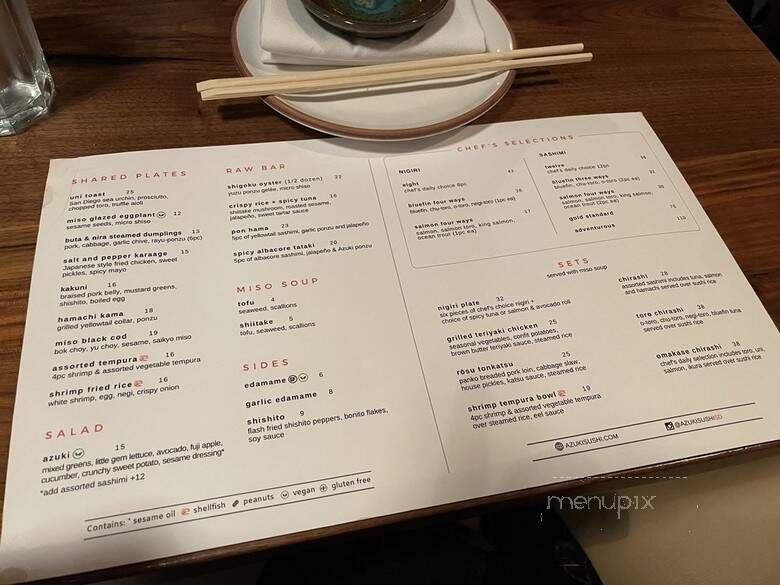 SHARED PLATES
uni toast 25
San Diego sea urchin, prosciutto,
chopped toro, truffle aioli
miso glazed eggplant 12
sesame seeds, micro shiso
buta & nira steamed dumplings 13
pork, cabbage, garlic chive, rayu-ponzu (6pc)
salt and pepper karaage 15
Japanese style fried chicken, sweet
pickles, spicy mayo
kakuni 16
braised pork belly, mustard greens,
shishito, boiled egg
hamachi kama 18
grilled yellowtail collar, ponzu
miso black cod 19
bok choy, yu choy, sesame, saikyo miso
assorted tempura 16
4pc shrimp & assorted vegetable tempura
shrimp fried rice 16
white shrimp, egg, negi, crispy onion
SALAD
azuki 15
mixed greens, little gem lettuce, avocado, fuji apple,
cucumber, crunchy sweet potato, sesame dressing*
*add assorted sashimi +12
RAW BAR
shigoku oyster (1/2 dozen) 22
yuzu ponzu gelée, micro shiso
crispy rice + spicy tuna 16
shiitake mushroom, roasted sesame,
jalapeño, sweet tartar sauce
pon hama 23
5pc of yellowtail sashimi, garlic ponzu and jalapeño
spicy albacore tataki 20
5pc of albacore sashimi, jalapeño & Azuki ponzu
MISO SOUP
tofu 4
seaweed, scallions
shiitake 5
tofu, seaweed, scallions
SIDES
edamame 6
garlic edamame 8
shishito 9
flash fried shishito peppers, bonito flakes,
soy sauce
Contains: * sesame oil shellfish peanuts vegan gluten free
CHEF'S SELECTIONS
NIGIRI
eight
chef's daily choice 8pc
bluefin four ways
bluefin, chu-toro, o-toro, negi-toro (1pc ea)
salmon four ways
salmon, salmon toro, king salmon,
ocean trout (1pc ea)
SASHIMI
twelve
chef's daily choice 12pc
bluefin three ways
bluefin, chu-toro, o-toro (2pc ea)
salmon four ways
salmon, salmon toro, king salmon,
ocean trout (2pc ea)
gold standard
adventurous 110
SETS
served with miso soup
nigiri plate 32
six pieces of chef's choice nigiri +
choice of spicy tuna or salmon & avocado roll
grilled teriyaki chicken 25
seasonal vegetables, confit potatoes,
brown butter teriyaki sauce, steamed rice
rōsu tonkatsu 25
panko breaded pork loin, cabbage slaw,
house pickles, katsu sauce, steamed rice
shrimp tempura bowl 19
4pc shrimp & assorted vegetable tempura
over steamed rice, eel sauce
chirashi 28
assorted sashimi includes tuna, salmon
and hamachi served over sushi rice
toro chirashi 38
o-toro, chu-toro, negi-toro, bluefin tuna
served over sushi rice
omakase chirashi 38
chef's daily selection includes toro, uni,
salmon, ikura served over sushi rice
AZUKISUSHI.COM
@AZUKISUSHISD
menupix